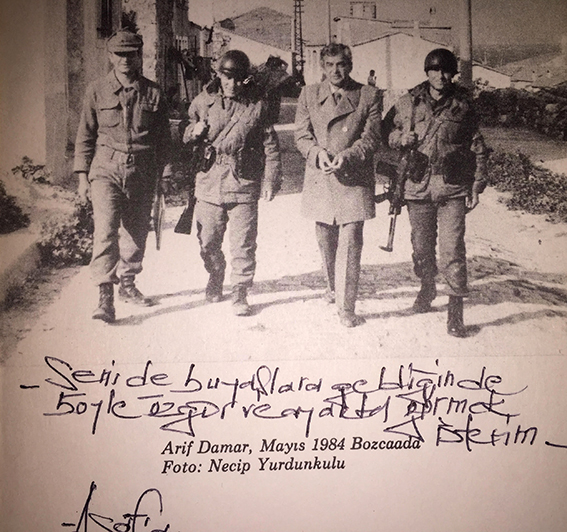 - Seni de bu yaşlara geldiğinde
böyle özgür ve ayakta görmek
isterim -
Arif Damar, Mayıs 1984 Bozcaada
Foto: Necip Yurdunkulu